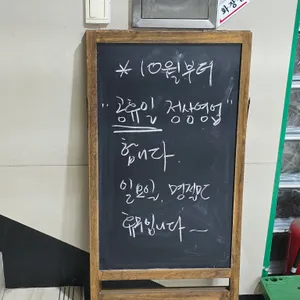 화장실
* 10월부터
"공휴일 정상영업"
합니다.
일요일, 명절만
휴무입니다~